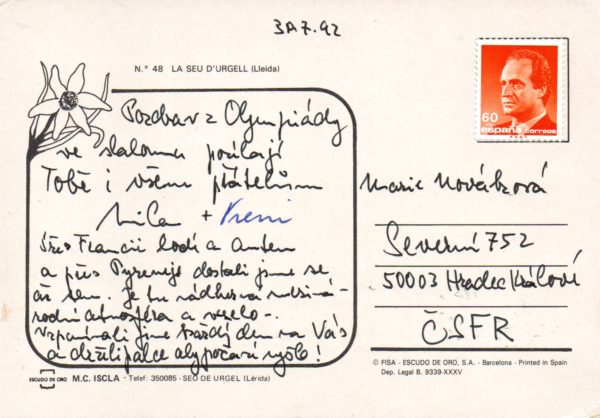 30.7.92
N.º 48 LA SEU D'URGELL (Lleida)
60
PTA
españa correos
Pozdrav z Olympiády
ve slalomu posílají
Tobě i všem přátelům
Mila + Vreni
Přes Francii lodí a autem
a přes Pyreneje dostali jsme se
až sem. Je tu nádherná meziná-
rodní atmosféra a veselo -.
Vzpomínali jsme každý den na Vás
a drželi palce aby počasí vyšlo!
Marie Nováková
Severní 752
50003 Hradec Králové
ČSFR
© FISA - ESCUDO DE ORO, S.A. - Barcelona - Printed in Spain
Dep. Legal B. 9339-XXXV
ESCUDO DE ORO M.C. ISCLA - Telef: 350085 - SEO DE URGEL (Lérida)